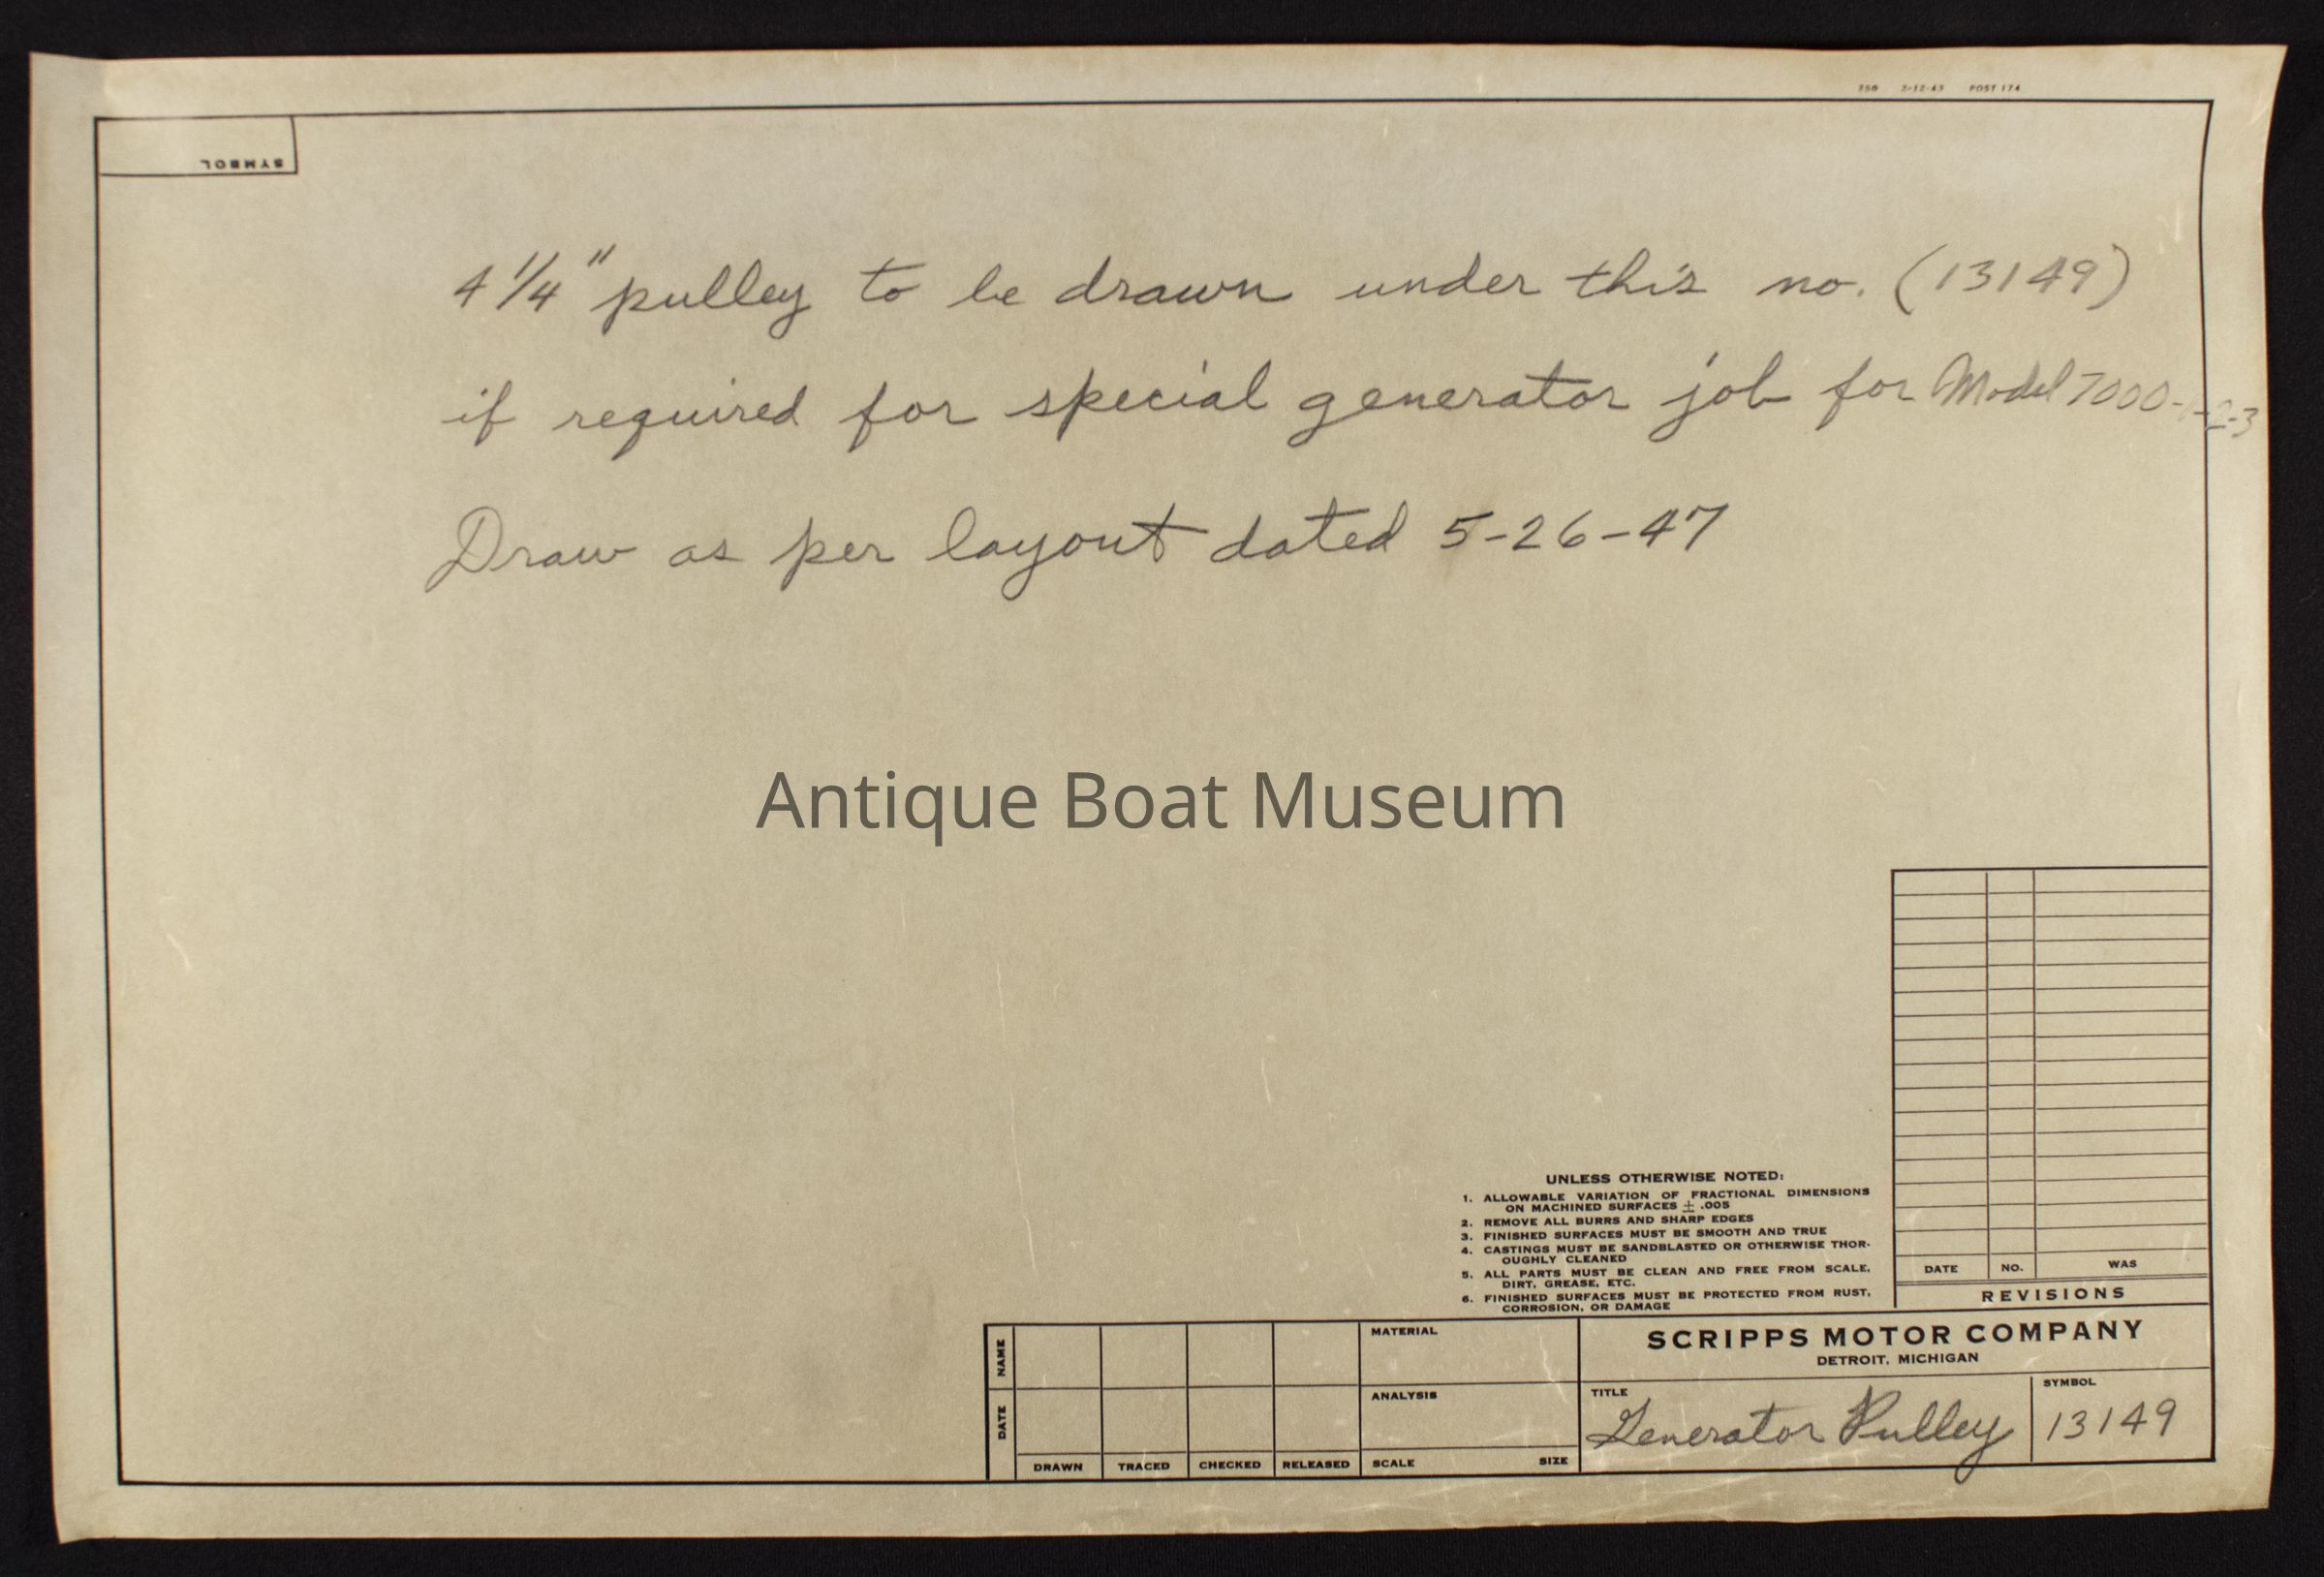 350 2-12-43 POST 174
SYMBOL
4 1/4" pulley to be drawn under this no. (13149)
if required for special generator job for Model 7000-1-2-3
Draw as per layout dated 5-26-47
Antique Boat Museum
UNLESS OTHERWISE NOTED:
1. ALLOWABLE VARIATION OF FRACTIONAL DIMENSIONS
ON MACHINED SURFACES ± .005
2. REMOVE ALL BURRS AND SHARP EDGES
3. FINISHED SURFACES MUST BE SMOOTH AND TRUE
4. CASTINGS MUST BE SANDBLASTED OR OTHERWISE THOR-
OUGHLY CLEANED
5. ALL PARTS MUST BE CLEAN AND FREE FROM SCALE,
DIRT, GREASE, ETC.
6. FINISHED SURFACES MUST BE PROTECTED FROM RUST,
CORROSION, OR DAMAGE
DATE NO. WAS
REVISIONS
NAME
DATE
DRAWN TRACED CHECKED RELEASED
MATERIAL
ANALYSIS
SCALE SIZE
SCRIPPS MOTOR COMPANY
DETROIT, MICHIGAN
TITLE
Generator Pulley
SYMBOL
13149